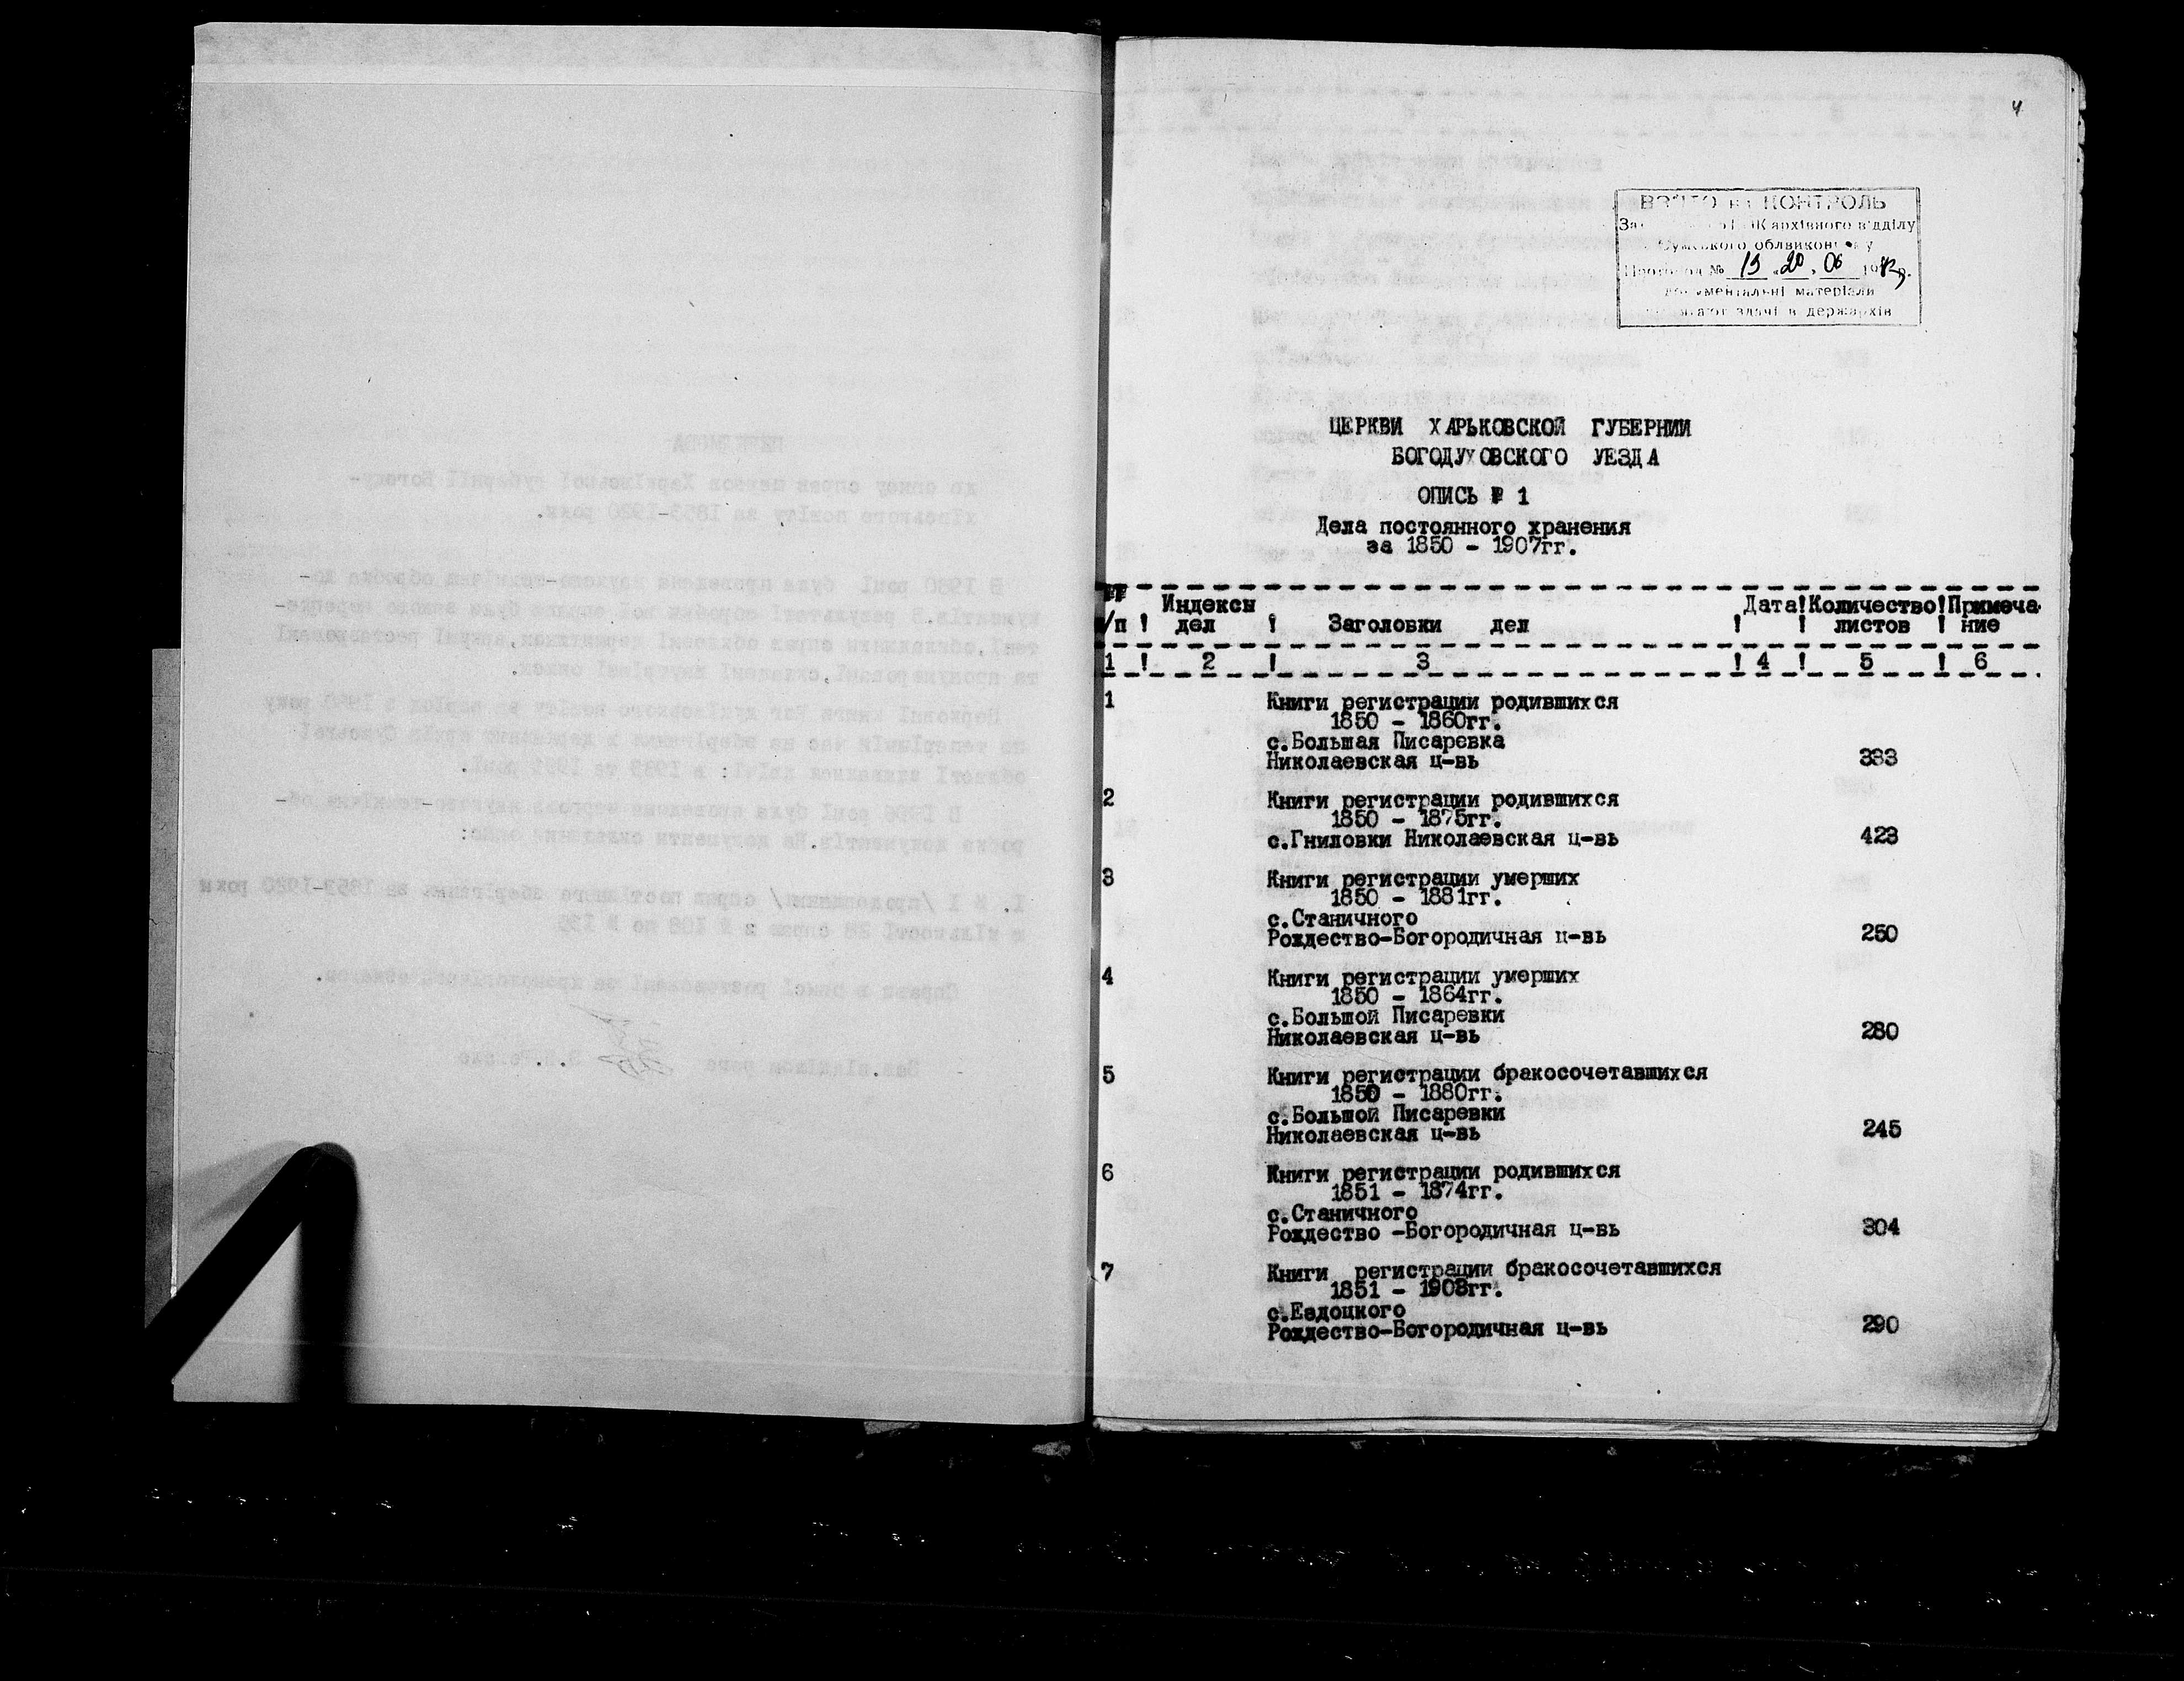 4
КОНТРОЛЬ
архівного відділу
Сумського облвиконкому
Протокол № 13 20 06
документальні матеріали
здачі в держархів
ЦЕРКВИ ХАРЬКОВСКОЙ ГУБЕРНИИ
БОГОДУХОВСКОГО УЕЗДА
ОПИСЬ № 1
Дела постоянного хранения
за 1850 - 1907гг.
№№ Индексы Дата!Количество!Примеча
/п ! дел ! Заголовки дел ! ! листов ! ние
1 ! 2 ! 3 ! 4 ! 5 ! 6
1 Книги регистрации родившихся
1850 - 1860гг.
с.Большая Писаревка
Николаевская ц-вь 383
2 Книги регистрации родившихся
1850 - 1875гг.
с.Гниловки Николаевская ц-вь 423
3 Книги регистрации умерших
1850 - 1881гг.
с.Станичного
Рождество-Богородичная ц-вь 250
4 Книги регистрации умерших
1850 - 1864гг.
с.Большой Писаревки
Николаевская ц-вь 280
5 Книги регистрации бракосочетавшихся
1850 - 1880гг.
с.Большой Писаревки
Николаевская ц-вь 245
6 Книги регистрации родившихся
1851 - 1874гг.
с.Станичного
Рождество -Богородичная ц-вь 304
7 Книги регистрации бракосочетавшихся
1851 - 1908гг.
с.Ездоцкого
Рождество-Богородичная ц-вь 290